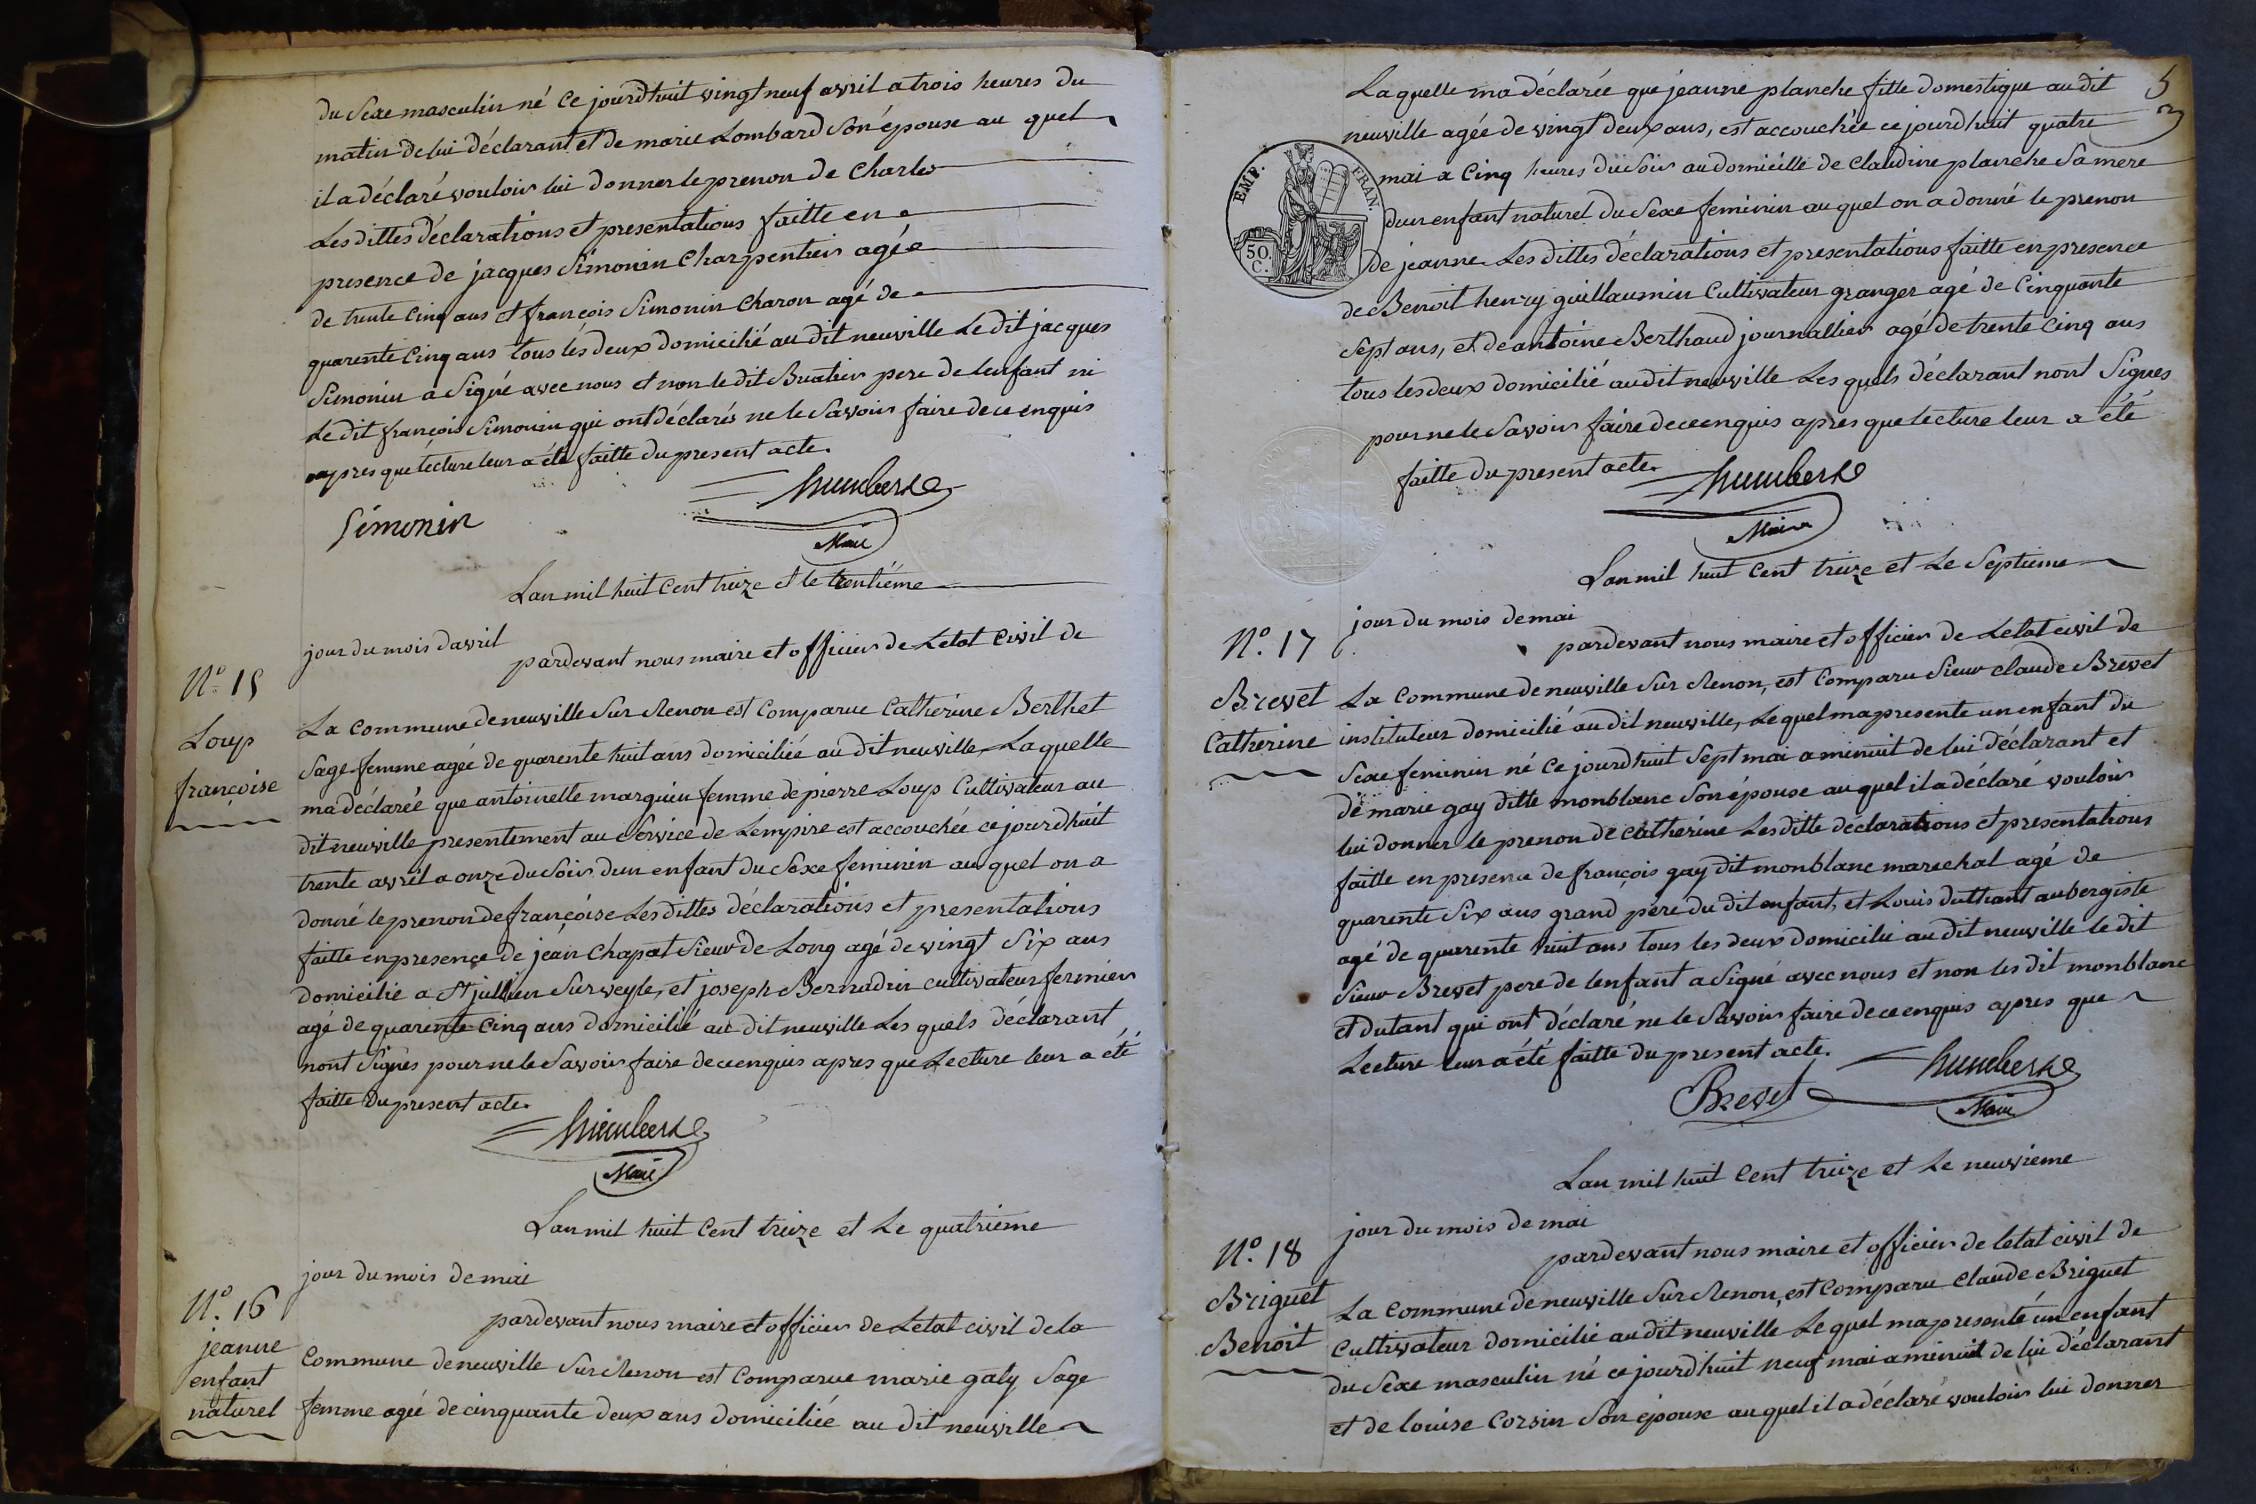 du Sexe masculin né Ce jourdhuit vingt neuf avril a trois heures du
matin de lui déclarant et de marie Lombard Son épouse au quel
il a déclaré vouloir lui donner le prenon de Charles
Les dittes déclarations et presentations faitte en
presence de jacques Simonin Charpentier agée
de trente Cinq ans et françois Simonin Charon agé de
quarente Cinq ans tous les deux domicilié au dit neuville Le dit jacques
Simonin a Signé avec nous et non le dit Buatier pere de lenfant ni
Le dit françois Simonin qui ont déclarés ne le Savoir faire de ce enquis
apres que lécture leur a été faitte du present acte.
Simonin
humbert
Maire
Lan mil huit Cent treize et le trentiéme
jour du mois davril
pardevant nous maire et officier de Letat Civil de
N.º 15
Loup
françoise
La Commune de neuville Sur Renon est Comparue Catherine Berthet
Sage femme agée de quarente huit ans domiciliée au dit neuville, Laquelle
ma déclarée que antoinette marguin femme de pierre Loup Cultivateur au
dit neuville presentement au Service de Lempire est accouchée ce jourdhuit
trente avril a onze du Soir dun enfant du Sexe feminin au quel on a
donné le prenon de françoise Les dittes déclarations et presentations
faitte en presence de jean Chapat Sieur de Long agé de vingt Six ans
domicilié a St jullien Sur veyle, et joseph Bernadin cultivateur fermier
agé de quarente Cinq ans domicilié au dit neuville Les quels déclarant
nont Signés pour ne le Savoir faire de ce enquis apres que Lecture leur a été
faitte du present acte.
humbert
Maire
Lan mil huit Cent treize et Le quatrieme
jour du mois de mai
N.º 16
jeanne
enfant
naturel
pardevant nous maire et officier de Letat civil de la
Commune de neuville Sur Renon est Comparue marie galy Sage
femme agée de cinquante deux ans domiciliée au dit neuville
5
Laquelle ma déclarée que jeanne planche fille domestique au dit
neuville agée de vingt deux ans, est accouchée ce jourdhuit quatre
mai a Cinq heures du Soir au domicille de Claudine planche Sa mere
dun enfant naturel du Sexe feminin au quel on a donné le prenon
de jeanne Les dittes déclarations et presentations faitte en presence
de Benoit henry guillaumin Cultivateur granger agé de Cinquante
Sept ans, et de antoine Berthaud journallier agé de trente Cinq ans
tous les deux domicilié au dit neuville Les quels déclarant nont Signés
pour ne le Savoir faire de ce enquis apres que lecture leur a été
faitte du present acte.
EMP. FRAN.
50. C.
humbert
Maire
Lan mil huit Cent treize et Le Septieme
jour du mois de mai
N.º 17
Brevet
Catherine
pardevant nous maire et officier de Letat civil de
La Commune de neuville Sur Renon, est Comparu Sieur Claude Brevet
instituteur domicilié au dit neuville, Lequel ma presente un enfant du
Sexe feminin né Ce jourdhuit Sept mai a minuit de lui déclarant et
de marie gay ditte monblanc Son épouse au quel il a déclaré vouloir
lui donner le prenon de catherine Les ditte déclarations et presentations
faitte en presence de françois gay dit monblanc marechal agé de
quarente Six ans grand pere du dit enfant, et Louis duthant aubergiste
agé de quarente huit ans tous les deux domicilié au dit neuville le dit
Sieur Brevet pere de lenfant a Signé avec nous et non les dit monblanc
et dutant qui ont déclaré ne le Savoir faire de ce enquis apres que
Lecture leur a été faitte du present acte.
humbert
Brevet
Maire
Lan mil huit Cent treize et Le neuvieme
jour du mois de mai
N.º 18
Briguet
Benoit
pardevant nous maire et officier de letat civil de
La Commune de neuville Sur Renon, est Comparu Claude Briguet
Cultivateur domicilié au dit neuville Lequel ma presenté un enfant
du Sexe masculin né ce jourdhuit neuf mai a minuit de lui déclarant
et de louise Corsin Son épouse au quel il a déclaré vouloir lui donner